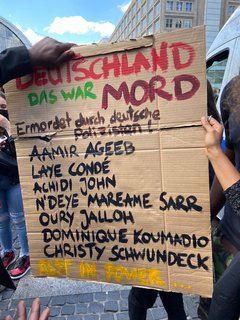 DEUTSCHLAND
DAS WAR MORD
Ermordet durch deutsche
Polizisten!
AAMIR AGEEB
LAYE CONDÉ
ACHIDI JOHN
N'DEYE MAREAME SARR
OURY JALLOH
DOMINIQUE KOUMADIO
CHRISTY SCHWUNDECK
REST IN POWER ...